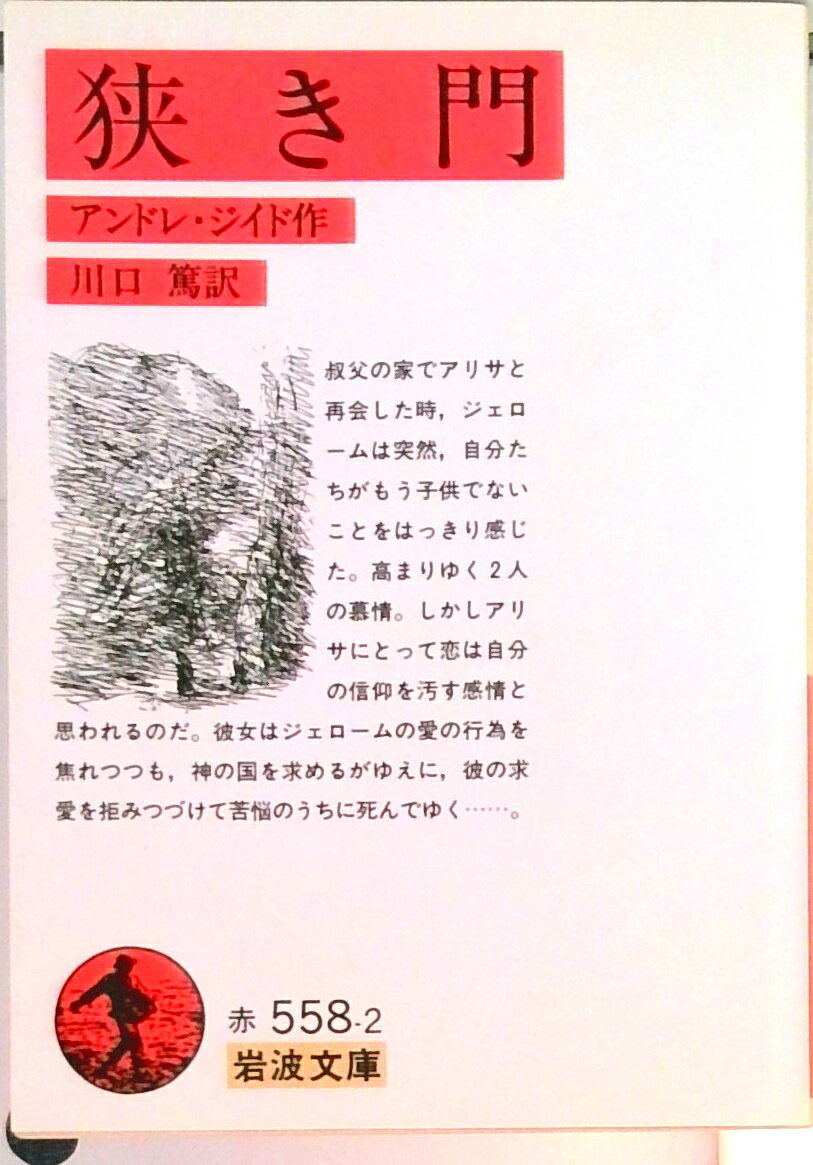 狭き門
アンドレ・ジイド作
川口 篤訳
叔父の家でアリサと
再会した時，ジェロ
ームは突然，自分た
ちがもう子供でない
ことをはっきり感じ
た。高まりゆく2人
の慕情。しかしアリ
サにとって恋は自分
の信仰を汚す感情と
思われるのだ。彼女はジェロームの愛の行為を
焦れつつも，神の国を求めるがゆえに，彼の求
愛を拒みつづけて苦悩のうちに死んでゆく……。
赤 558-2
岩波文庫